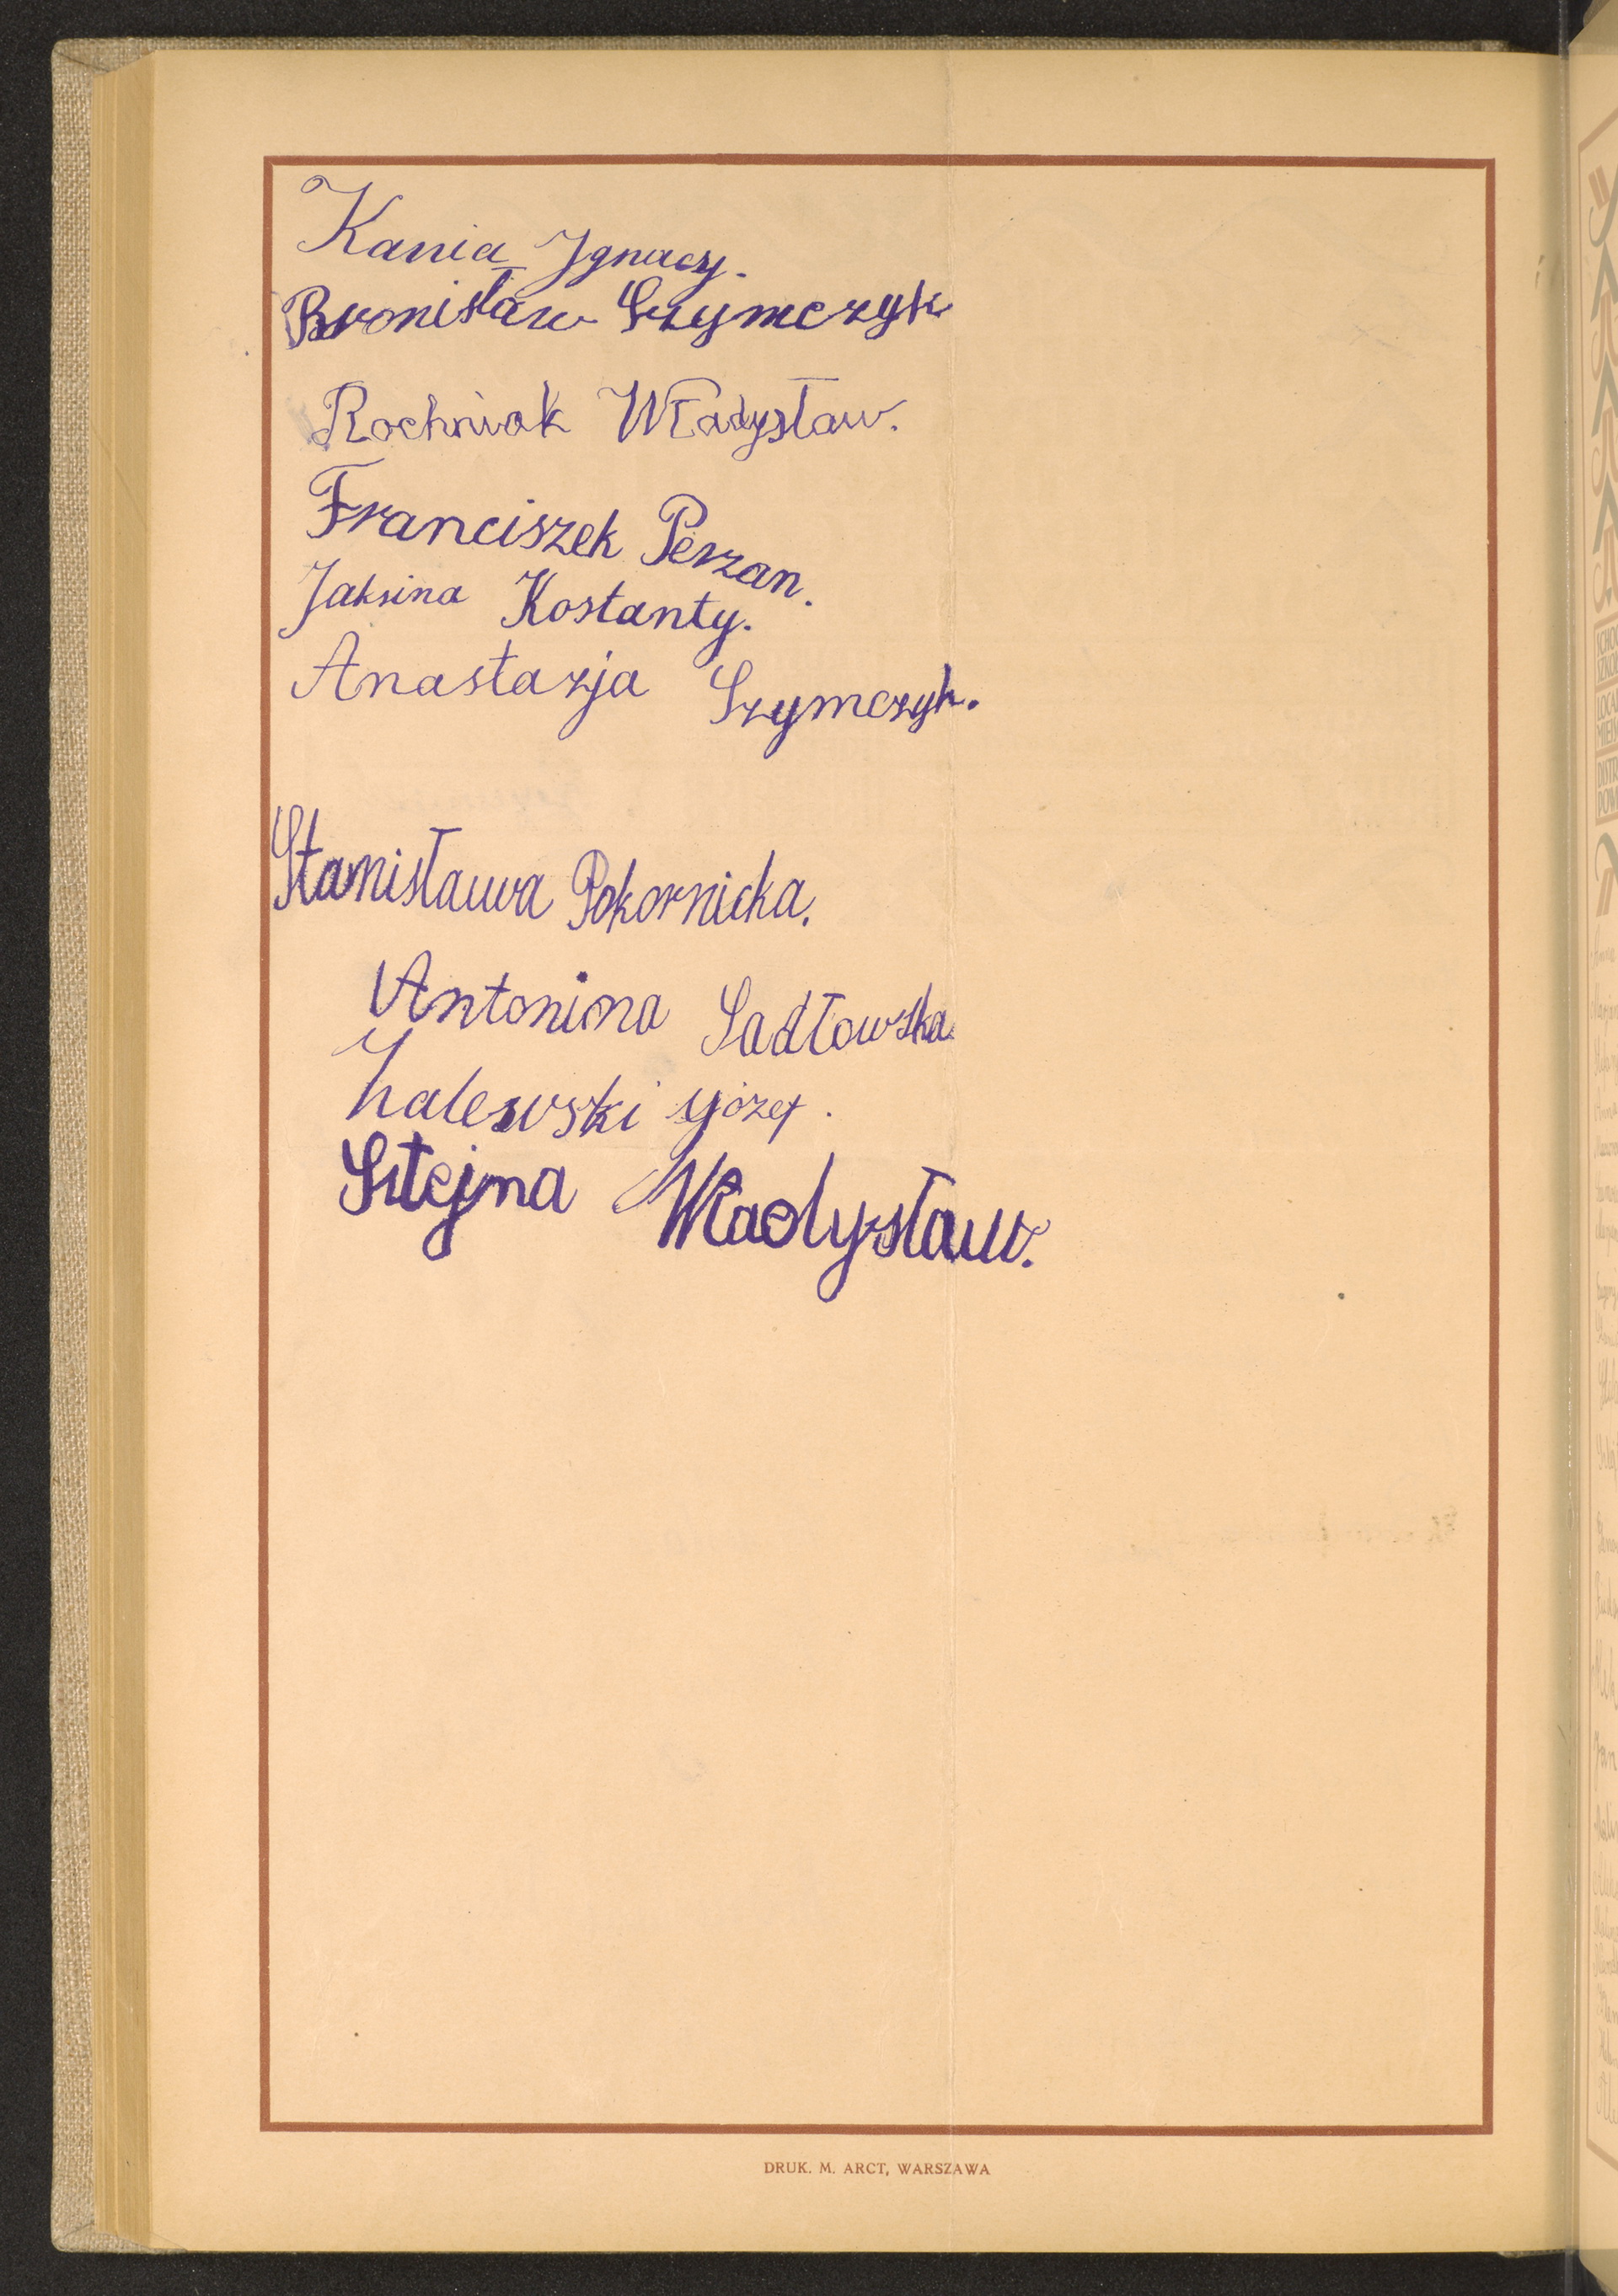 Kania Ignacy.
Bronisław Szymczyk
Rochniak Władysław.
Franciszek Perzan.
Jaksina Kostanty.
Anastazja Szymczyk.
Stanisława Pokornicka.
Antonina Sadłowska
Zalewski Józef.
Sztejna Władysław.
DRUK. M. ARCT, WARSZAWA